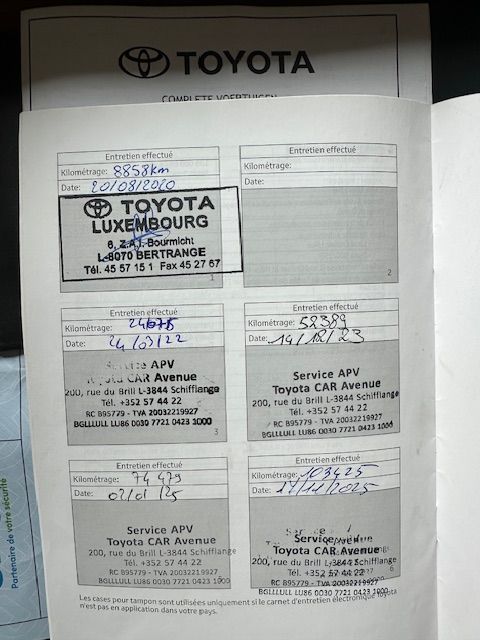 TOYOTA
COMPLETE VOERTUIGEN
Entretien effectué
Kilométrage: 8858km
Date: 20/08/2020
TOYOTA
LUXEMBOURG
6, Z.A.I. Bourmicht
L-8070 BERTRANGE
Tél. 45 57 15 1 Fax 45 27 67
1
Entretien effectué
Kilométrage:
Date:
2
Entretien effectué
Kilométrage:
Date: 24/03/22
Service APV
Toyota CAR Avenue
200, rue du Brill L-3844 Schifflange
Tél. +352 57 44 22
RC B95779 - TVA 20032219927
BGLLLULL LU86 0030 7721 0423 1000
3
Entretien effectué
Kilométrage: 52389
Date: 14/12/23
Service APV
Toyota CAR Avenue
200, rue du Brill L-3844 Schifflange
Tél. +352 57 44 22
RC B95779 - TVA 20032219927
BGLLLULL LU86 0030 7721 0423 1000
Entretien effectué
Kilométrage: 74 479
Date: 02/01/25
Service APV
Toyota CAR Avenue
200, rue du Brill L-3844 Schifflange
Tél. +352 57 44 22
RC B95779 - TVA 20032219927
BGLLLULL LU86 0030 7721 0423 1000
Entretien effectué
Kilométrage: 103425
Date: 17/11/2025
Toyota CAR Avenue
200, rue du Brill L-3844 Schifflange
Tél. +352 57 44 22
6
RC B95779 - TVA 20032219927
BGLLLULL LU86 0030 7721 0423 1000
Les cases pour tampon sont utilisées uniquement si le carnet d'entretien électronique Toyota
n'est pas en application dans votre pays.
Partenaire de votre sécurité